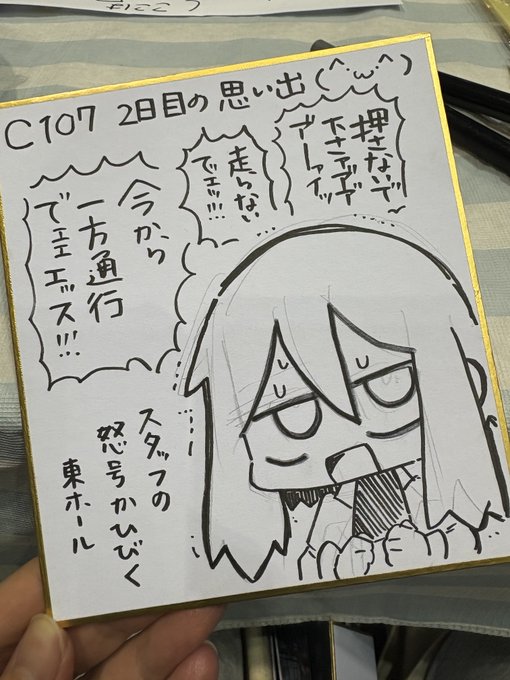 C107 2日目の思い出(^ω^)
押さないで
下さアアア
アーーイッ
走らない
でェッ!!!
今から
一方通行
でエエエッス!!!
スタッフの
怒号かひびく
東ホール